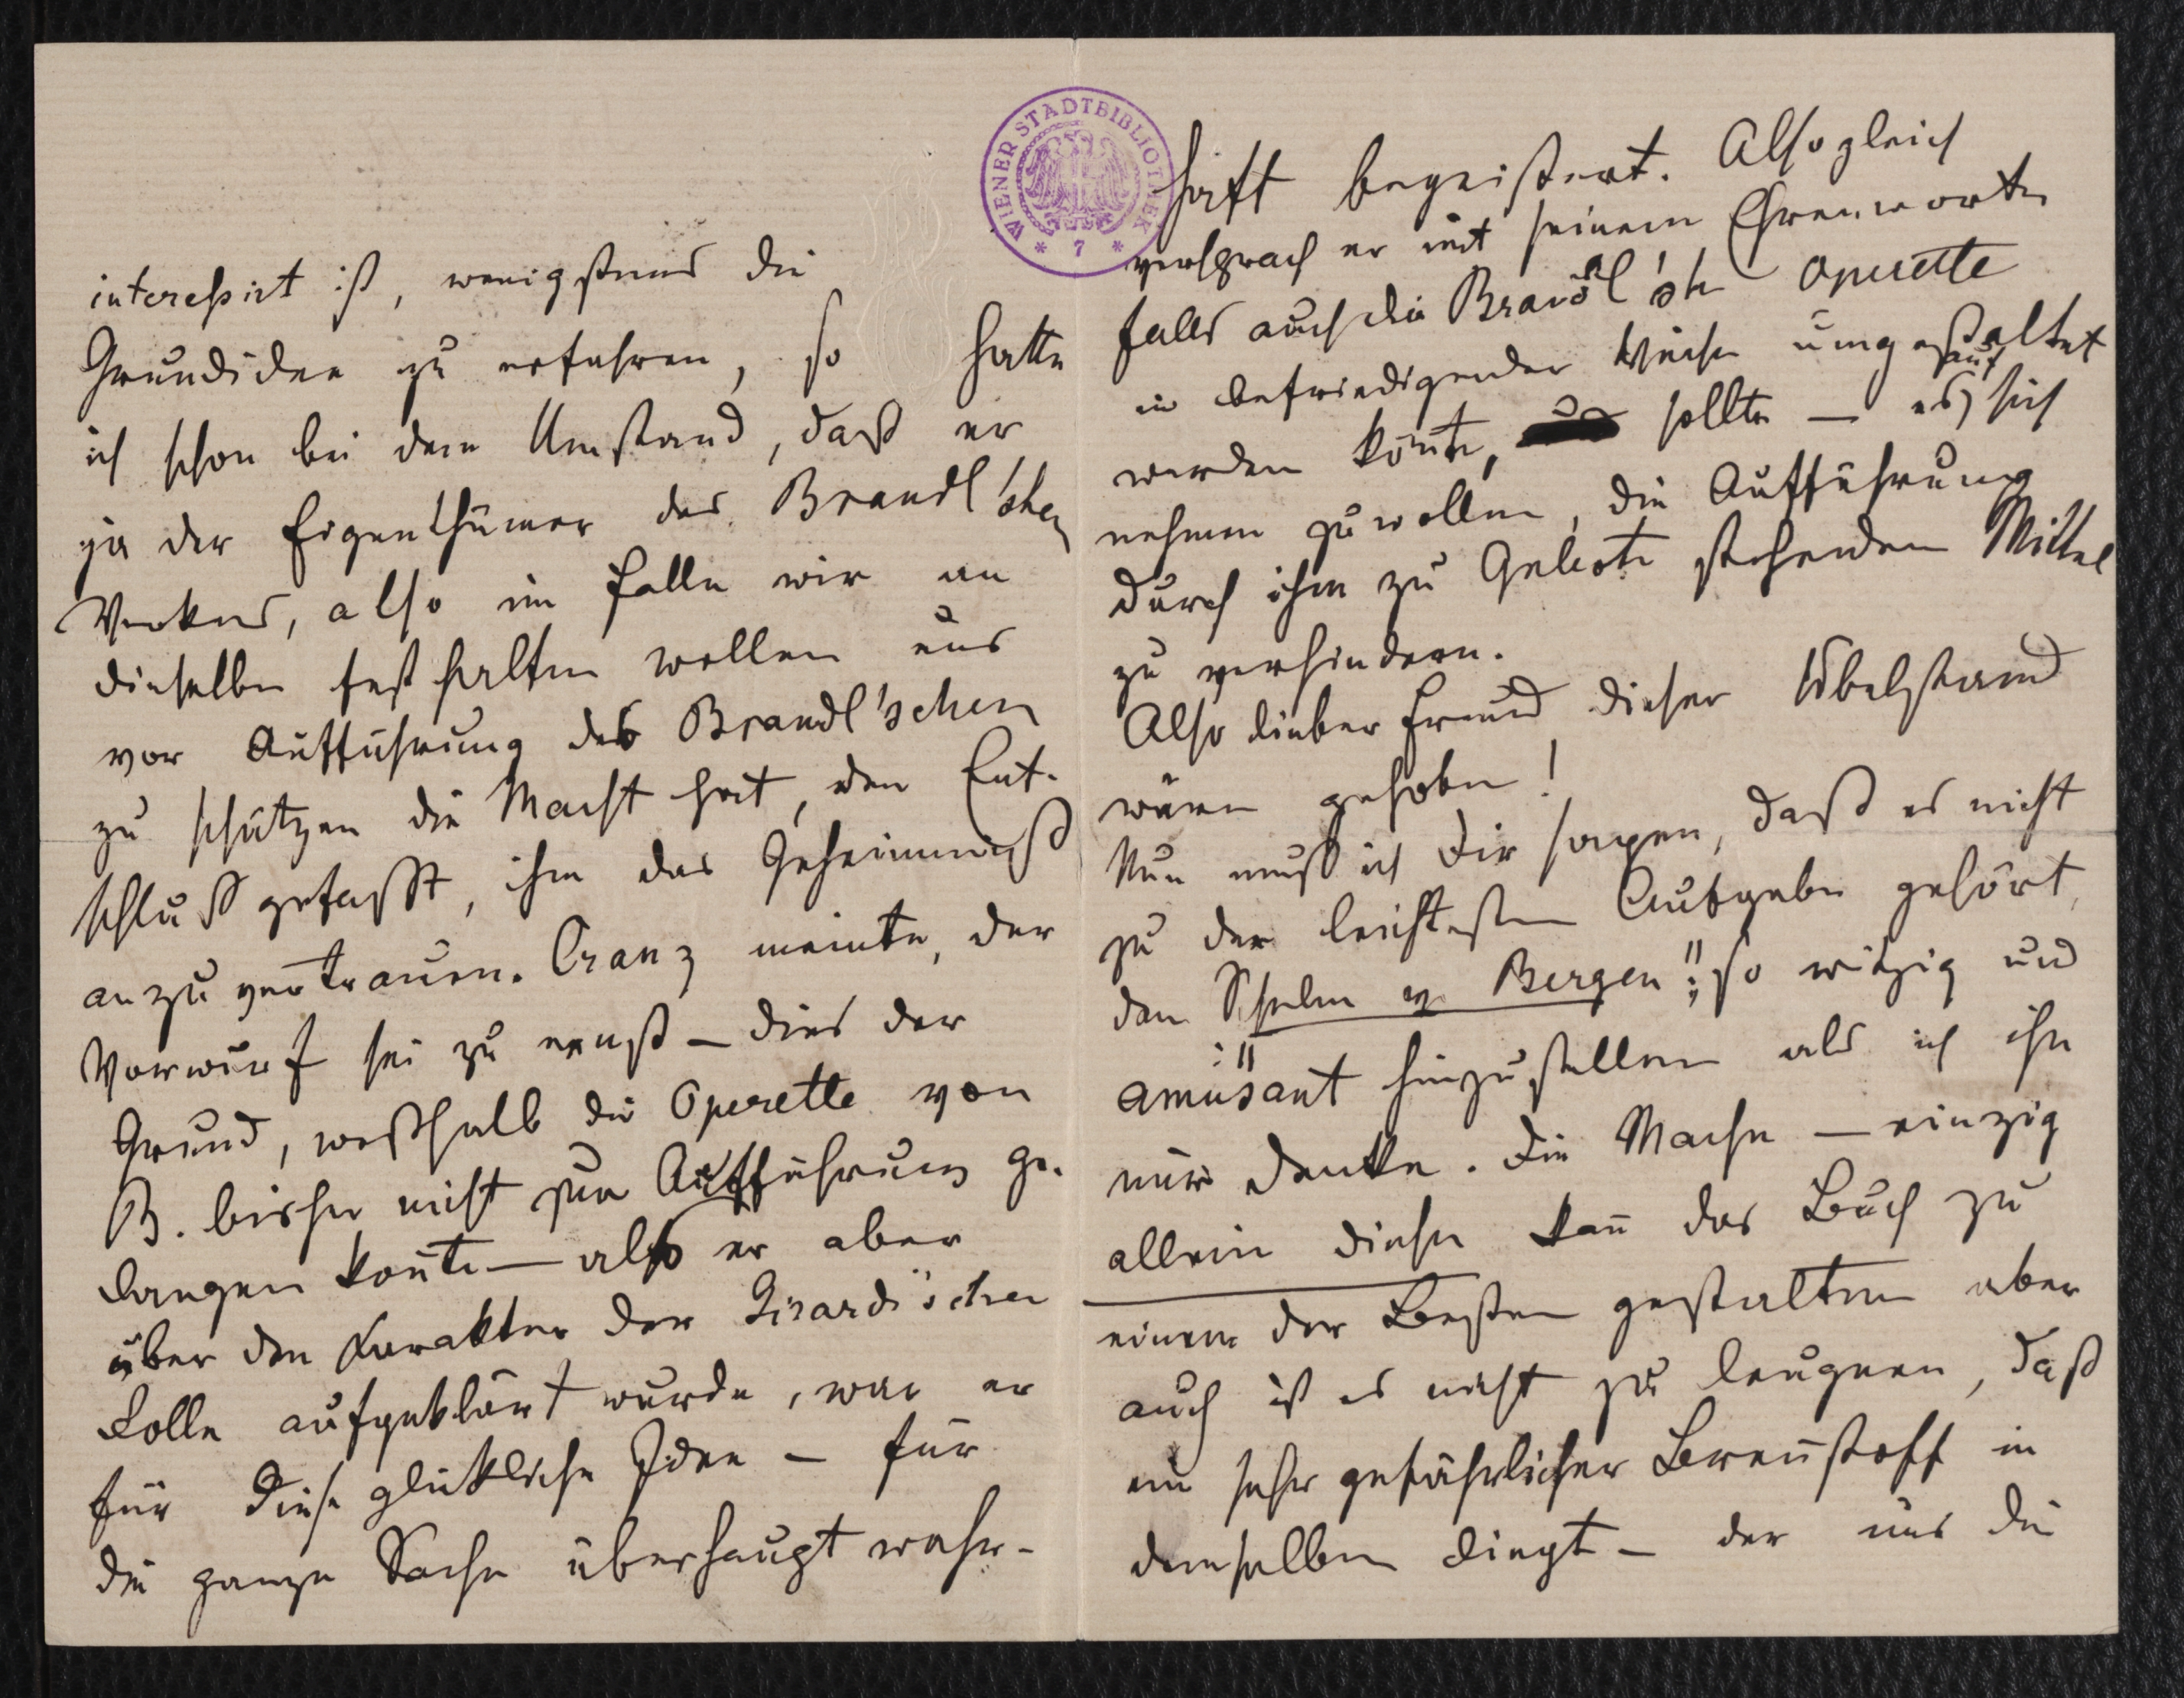 interessirt ist, wenigstens die
Grundidee zu erfahren, so hatte
ich schon bei dem Umstand, daß er
ja der Eigenthümer des Brandl'schen
Werkes, also im Falle wir an
dieselben festhalten wollen uns
vor Aufführung des Brandl'schen
zu schützen die Macht hat, den Ent-
schluß gefaßt, ihm das Geheimniß
anzuvertrauen. Cranz meinte, der
Vorwurf sei zu ernst – dies der
Grund, weßhalb die Operette von
B. bisher nicht zur Aufführung ge-
langen konnte – als er aber
über den Karakter der Girardi'schen
Rolle aufgeklärt wurde, war er
für diese glückliche Idee – für
die ganze Sache überhaupt wahr-
WIENER STADTBIBLIOTHEK
* 7 *
haft begeistert. Alsogleich
versprach er mit seinem Ehrenworte
falls auch die Brandl'sche Operette
in befriedigender Weise umgestaltet
werden könnte, sollte – es auf sich
nehmen zu wollen, die Aufführung
durch ihm zu Gebote stehenden Mittel
zu verhindern.
Also lieber Freund dieser Übelstand
wäre gehoben!
Nun muß ich Dir sagen, daß es nicht
zu der leichtesten Aufgabe gehört,
den Schelm v. Bergen" so witzig und
amüsant hinzustellen als ich ihn
mir denke. Die Mache – einzig
allein diese kann das Buch zu
einem der Besten gestalten aber
auch ist es nicht zu leugnen, daß
ein sehr gefährlicher Brennstoff in
demselben liegt – der uns die